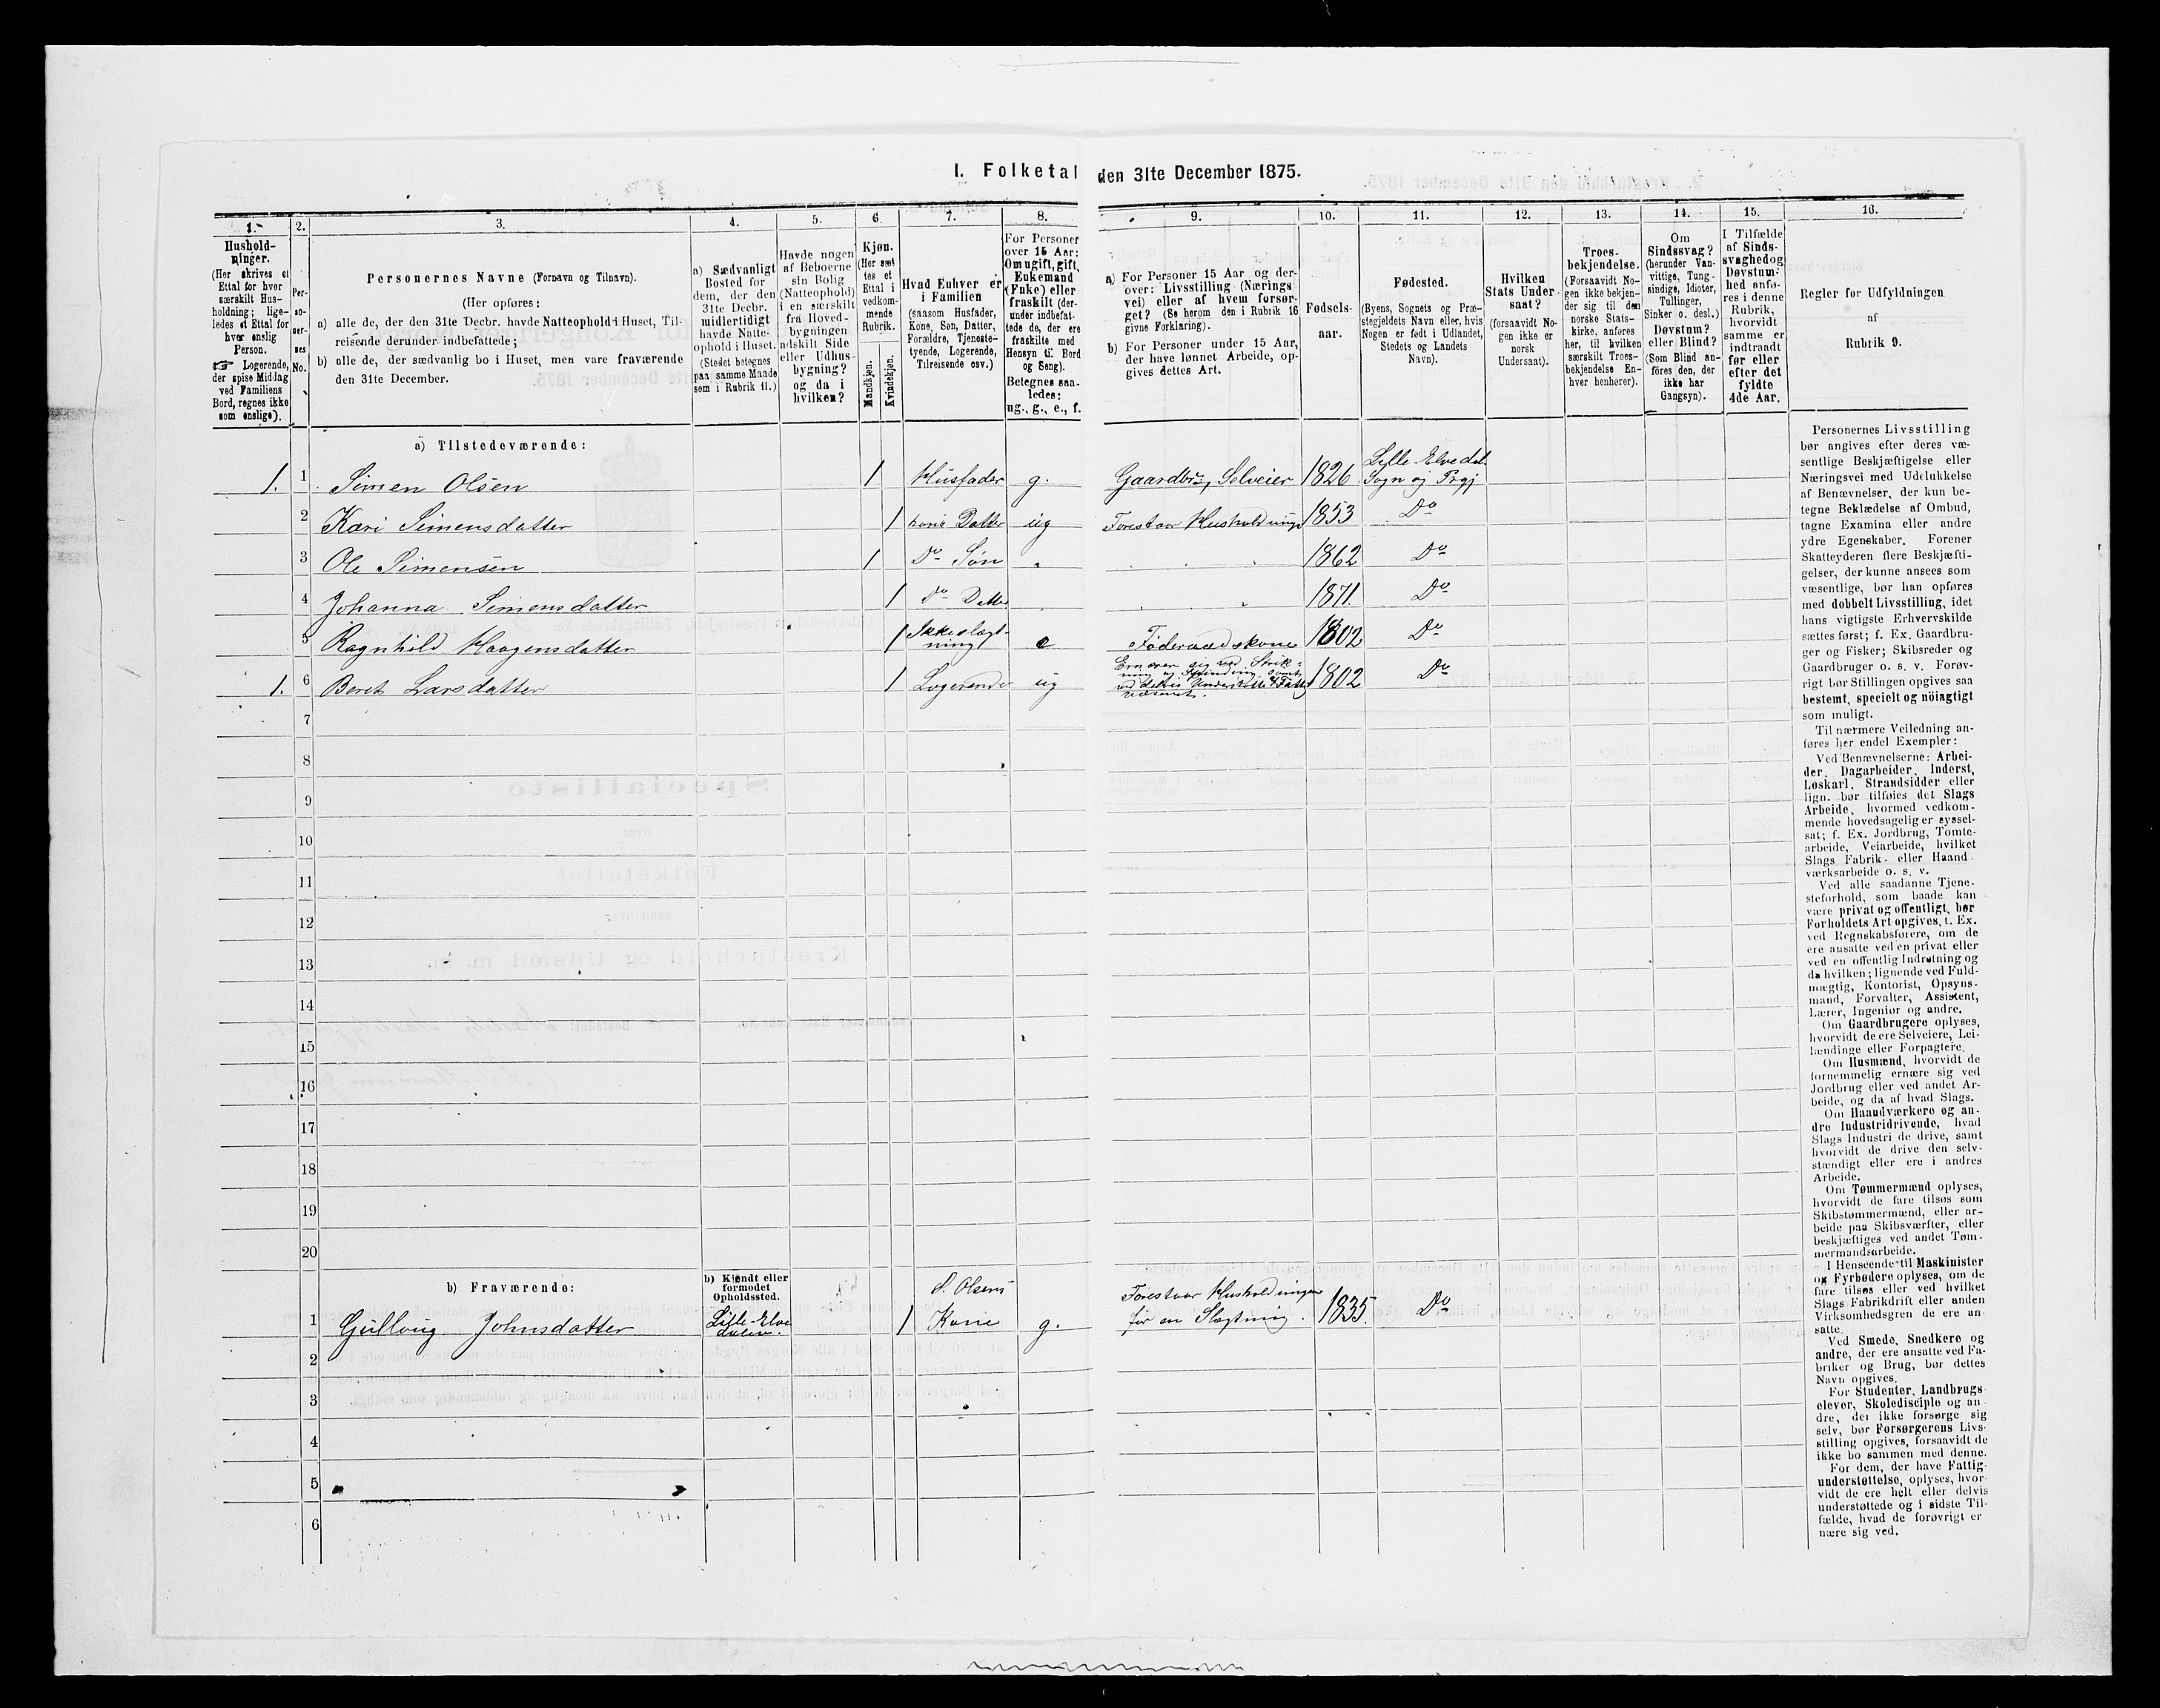 I. Folketal den 31te December 1875.
1.
Hushold-
ninger.
(Her skrives et
Ettal for hver
særskilt Hus-
holdning; lige-
ledes et Ettal for
hver enslig
Person.
☞ Logerende,
der spise Middag
ved Familiens
Bord, regnes ikke
som enslige).
2.
Per-
so-
ner-
nes
No.
3.
Personernes Navne (Fornavn og Tilnavn).
(Her opføres:
a) alle de, der den 31te Decbr. havde Natteophold i Huset, Til-
reisende derunder indbefattede;
b) alle de, der sædvanlig bo i Huset, men vare fraværende
den 31te December.
4.
a) Sædvanligt
Bosted for
dem, der den
31te Decbr.
midlertidigt
havde Natte-
ophold i Huset.
(Stedet betegnes
paa samme Maade
som i Rubrik 11.)
5.
Havde nogen
af Beboerne
sin Bolig
(Natteophold)
i en særskilt
fra Hoved-
bygningen
adskilt Side
eller Udhus-
bygning?
og da i
hvilken?
6.
Kjøn.
(Her sæt
tes et
Ettal i
vedkom-
mende
Rubrik.
Mandkjøn.
Kvindekjøn.
7.
Hvad Enhver er
i Familien
(saasom Husfader,
Kone, Søn, Datter,
Forældre, Tjeneste-
tyende, Logerende,
Tilreisende osv.)
8.
For Personer
over 15 Aar:
Om ugift, gift,
Enkemand
(Enke) eller
fraskilt (der-
under indbefat-
tede de, der ere
fraskilte med
Hensyn til Bord
og Seng).
Betegnes saa-
ledes:
ug., g., e., f.
9.
a) For Personer 15 Aar og der-
over: Livsstilling (Nærings
vei) eller af hvem forsør-
get? (Se herom den i Rubrik 16
givne Forklaring).
b) For Personer under 15 Aar,
der have lønnet Arbeide, op-
gives dettes Art.
10.
Fødsels-
aar.
11.
Fødested.
(Byens, Sognets og Præ-
stegjeldets Navn eller, hvis
Nogen er født i Udlandet,
Stedets og Landets
Navn).
12.
Hvilken
Stats Under
saat?
(forsaavidt No-
gen ikke er
norsk
Undersaat).
13.
Troes-
bekjendelse.
(Forsaavidt No-
gen ikke bekjen-
der sig til den
norske Stats-
kirke, anføres
her, til hvilken
særskilt Troes-
bekjendelse En-
hver henhører).
14.
Om
Sindssvag?
(herunder Van-
vittige, Tung-
sindige, Idioter,
Tullinger,
Sinker o. desl.)
Døvstum?
eller Blind?
(Som Blind an-
føres den, der
ikke har
Gangsyn).
15.
I Tilfælde
af Sinds-
svaghed og
Døvstum-
hed anfø-
res i denne
Rubrik,
hvorvidt
samme er
indtraadt
før eller
efter det
fyldte
4de Aar.
16.
Regler før Udfyldningen
af
Rubrik 9.
a) Tilstedeværende:
1. 1 Simen Olsen 1 Husfader g. Gaardbr, Selveier 1826 Lille-Elvedal Sogn og Prgj
2 Kari Simensdatter 1 hans Datter ug Forestaar Husholdning 1853 Do
3 Ole Simensen 1 Do Søn 1862 Do
4 Johanna Simensdatter 1 Do Datter 1871. Do
5 Ragnhild Haagensdatter 1 Ikke slægtning e Føderaadskone 1802 Do
1. 6 Beret Larsdatter 1 Logerende ug Ernærer sig ved Strikning og Spinding, samt ved delvis Understøttelse af Fattigvæsenet. 1802 Do
7
8
9
10
11
12
13
14
15
16
17
18
19
20
b) Fraværende:
b) Kjendt eller
formodet
Opholdssted.
1 Gulloug Johnsdatter Lille-Elvedalen. 1 S. Olsens Kone g. Forestaar Husholdningen for en Slægtning. 1835. Do
2
3
4
5
6
Personernes Livsstilling
bør angives efter deres væ-
sentlige Beskjæftigelse eller
Næringsvei med Udelukkelse
af Benævnelser, der kun be-
tegne Beklædelse af Ombud,
tagne Examina eller andre
ydre Egenskaber. Forener
Skatteyderen flere Beskjæfti-
gelser, der kunne ansees som
væsentlige, bør han opføres
med dobbelt Livsstilling, idet
hans vigtigste Erhvervskilde
sættes først; f. Ex. Gaardbru-
ger og Fisker; Skibsreder og
Gaardbruger o. s. v. Forøv-
rigt bør Stillingen opgives saa
bestemt, specielt og nöiagtigt
som muligt.
Til nærmere Veiledning an-
føres her endel Exempler:
Ved Benævnelserne: Arbei-
der, Dagarbeider, Inderst,
Løskarl, Strandsidder eller
lign. bør tilføies det Slags
Arbeide, hvormed vedkom-
mende hovedsagelig er syssel-
sat; f. Ex. Jordbrug, Tomte-
arbeide, Veiarbeide, hvilket
Slags Fabrik- eller Haand-
værksarbeide o. s. v.
Ved alle saadanne Tjene-
steforhold, som baade kan
være privat og offentligt, bør
Forholdets Art opgives, t. Ex.
ved Regnskabsførere, om de
ere ansatte ved en privat eller
ved en offentlig Indretning og
da hvilken; lignende ved Fuld-
mægtig, Kontorist, Opsyns-
mand, Forvalter, Assistent,
Lærer, Ingeniør og andre.
Om Gaardbrugere oplyses,
hvorvidt de ere Selveiere, Lei-
lændinge eller Forpagtere.
Om Husmænd, hvorvidt de
fornemmelig ernære sig ved
Jordbrug eller ved andet Ar-
beide, og da af hvad Slags.
Om Haandværkere og an-
dre Industridrivende, hvad
Slags Industri de drive, samt
hvorvidt de drive den selv-
stændigt eller ere i andres
Arbeide.
Om Tømmermænd oplyses,
hvorvidt de fare tilsøs som
Skibstømmermænd, eller ar-
beide paa Skibsværfter, eller
beskjæftiges ved andet Tøm-
mermandsarbeide.
I Henseende til Maskinister
og Fyrbødere oplyses, om de
fare tilsøs eller ved hvilket
Slags Fabrikdrift eller anden
Virksomhedsgren de ere an-
satte.
Ved Smede, Snedkere og
andre, der ere ansatte ved Fa-
briker og Brug, bør dettes
Navn opgives.
For Studenter, Landbrugs-
elever, Skoledisciple og an-
dre, der ikke forsørge sig
selv, bør Forsørgerens Livs-
stilling opgives, forsaavidt de
ikke bo sammen med denne.
For dem, der have Fattig-
understøttelse, oplyses, hvor-
vidt de ere helt eller delvis
understøttede og i sidste Til-
fælde, hvad de forøvrigt er
nære sig ved.